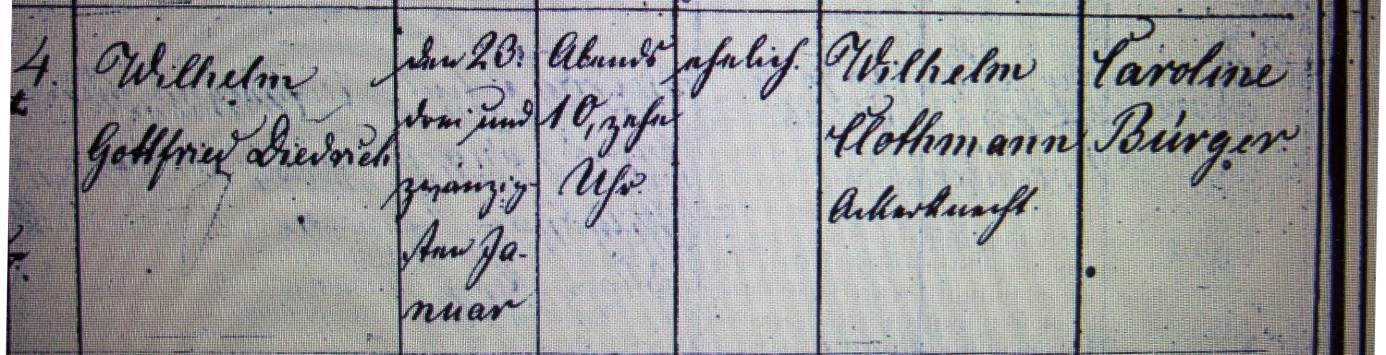 4.
Wilhelm
Gottfried Diedrich
den 23:
drei und
zwanzig-
sten Ja-
nuar
Abends
10, zehn
Uhr.
ehelich.
Wilhelm
Clothmann
Ackerknecht.
Caroline
Bürger.